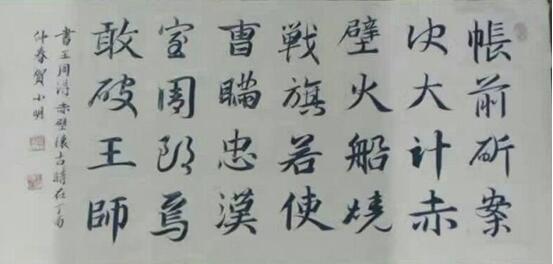 帳前斫案
决大計赤
壁火船燒
戦旗若使
曹瞞忠漢
室周郎焉
敢破王師
書王赤壁懷古時在丁酉
仲春賀小明